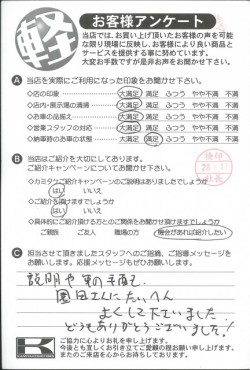 軽
お客様アンケート
当店では、お買い上げ頂いたお客様の声を可能
な限り現場に反映し、お客様により良い商品と
サービスを提供する事に努めています。
大変お手数ですが是非お声をお聞かせ下さい。
A 当店を実際にご利用になった印象をお聞かせ下さい。
◇店の印象 大満足 満足 ふつう やや不満 不満
◇店内・展示場の清掃 大満足 満足 ふつう やや不満 不満
◇お車の品揃え 大満足 満足 ふつう やや不満 不満
◇営業スタッフの対応 大満足 満足 ふつう やや不満 不満
◇納車時のお車の状態 大満足 満足 ふつう やや不満 不満
B 当店はご紹介を大切にしております。
ご紹介キャンペーンについてお聞かせ下さい。
◇カミタケご紹介キャンペーンのご説明はありましたでしょうか
はい いいえ
◇ご紹介を頂けますでしょうか
はい いいえ
◇具体的にご紹介頂ける方とのご関係をお聞かせ頂けますでしょうか
ご親族 ご友人 職場の方 機会があれば紹介したい
C 担当させて頂きましたスタッフへのご指摘、ご指導メッセージを
お願いします。応援メッセージもぜひお願いします。
説明や車の手配で
園田さんにたいへん
よくして下さいました
どうもありがとうございました!
ご協力に心よりお礼を申し上げます。
今後とも宜しくお引き立てご愛顧の程お願い申し上げます。
またのご来店を心からお待ちしております。